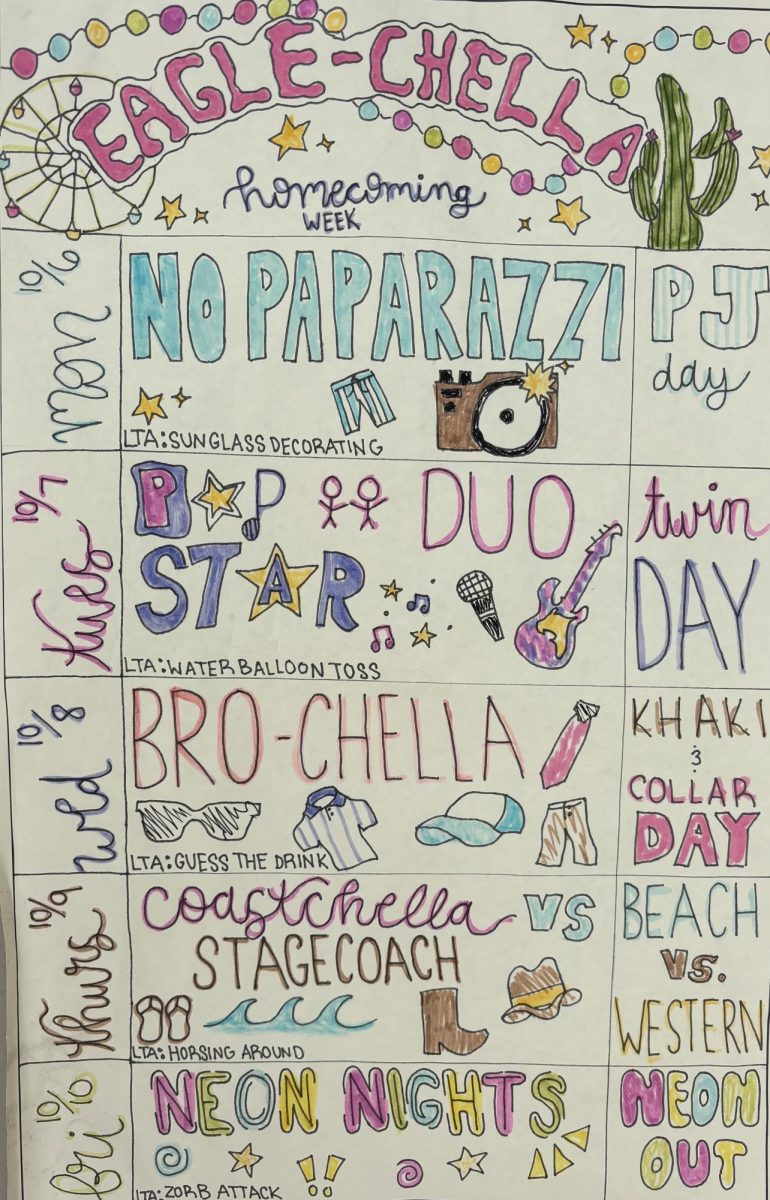 EAGLE-CHELLA
homecoming
WEEK
mon 10/6
NO PAPARAZZI
LTA: SUNGLASS DECORATING
PJ
day
tues 10/7
POP DUO
STAR
LTA: WATER BALLOON TOSS
twin
DAY
wed 10/8
BRO-CHELLA
LTA: GUESS THE DRINK
KHAKI
&
COLLAR
DAY
thurs 10/9
coastchella VS
STAGECOACH
LTA: HORSING AROUND
BEACH
VS.
WESTERN
fri 10/10
NEON NIGHTS
!!
LTA: ZORB ATTACK
NEON
OUT